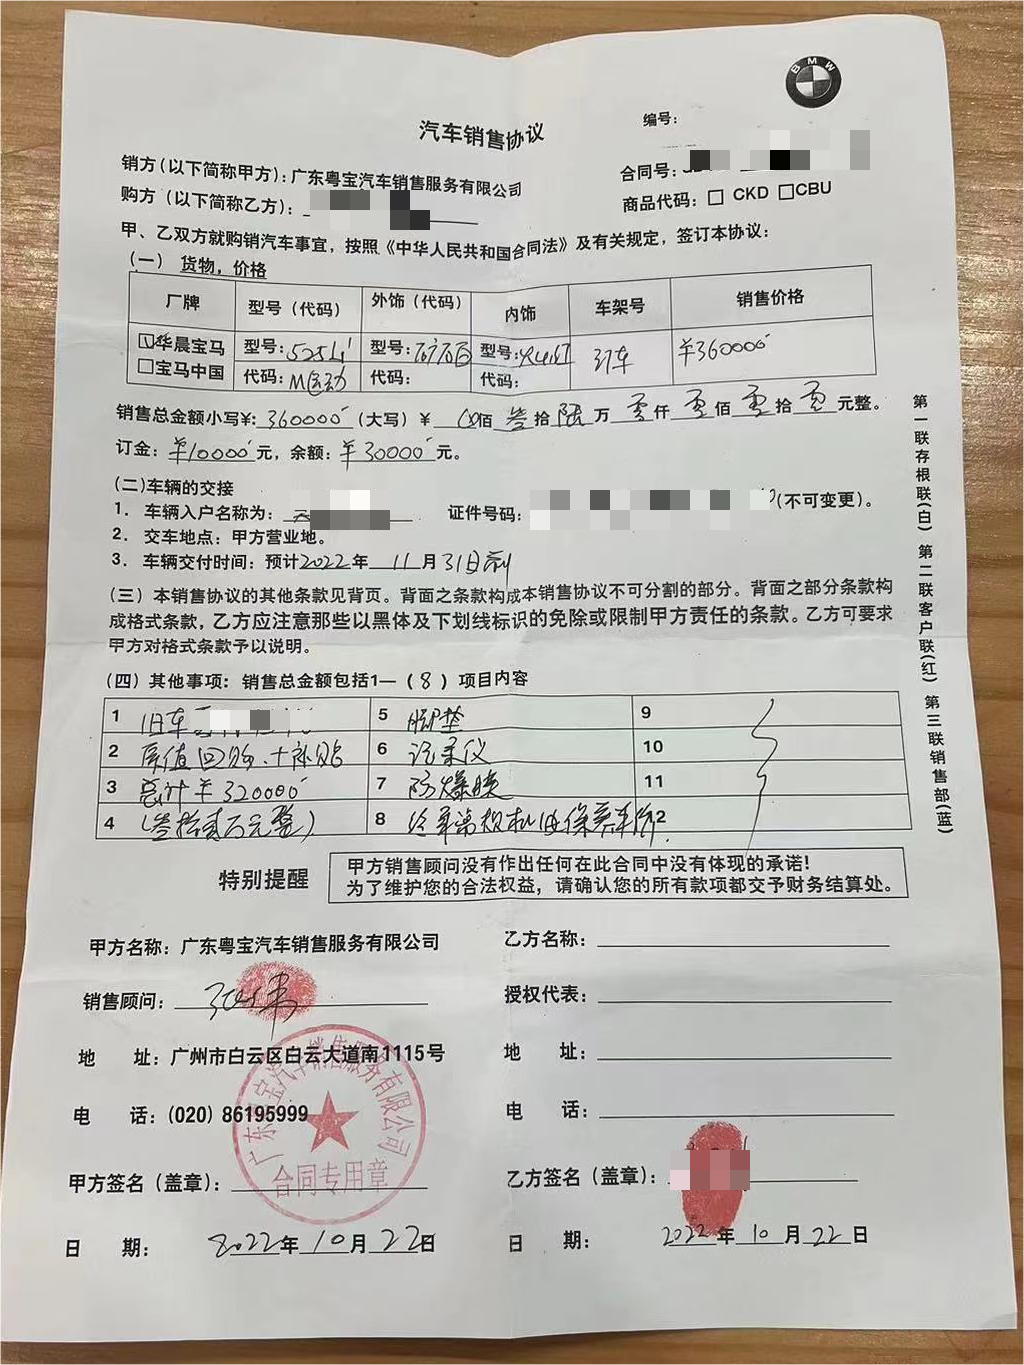 BMW
汽车销售协议
编号:
销方(以下简称甲方): 广东粤宝汽车销售服务有限公司
合同号:
购方(以下简称乙方):
商品代码: □ CKD □CBU
甲、乙双方就购销汽车事宜，按照《中华人民共和国合同法》及有关规定，签订本协议:
(一) 货物，价格
厂牌 型号(代码) 外饰(代码) 内饰 车架号 销售价格
☑华晨宝马 型号: 525Li 型号: 矿石白 型号: 订车 ¥360000
□宝马中国 代码: M运动 代码: 代码:
销售总金额小写¥: 360000 (大写) ¥ 佰 叁 拾 陆 万 零 仟 零 佰 零 拾 零 元整。
订金: ¥10000 元，余额: ¥30000 元。
(二)车辆的交接
1. 车辆入户名称为: 证件号码: (不可变更)。
2. 交车地点: 甲方营业地。
3. 车辆交付时间: 预计2022年 11 月 31日前
(三) 本销售协议的其他条款见背页。背面之条款构成本销售协议不可分割的部分。背面之部分条款构
成格式条款，乙方应注意那些以黑体及下划线标识的免除或限制甲方责任的条款。乙方可要求
甲方对格式条款予以说明。
(四) 其他事项: 销售总金额包括1—(8) 项目内容
1 旧车 5 脚垫 9
2 原值回购、+补贴 6 记录仪 10
3 总计¥320000 7 防爆膜 11
4 (叁拾贰万元整) 8 保养 12
特别提醒
甲方销售顾问没有作出任何在此合同中没有体现的承诺!
为了维护您的合法权益，请确认您的所有款项都交予财务结算处。
第一联存根联(白) 第二联客户联(红) 第三联销售部(蓝)
甲方名称: 广东粤宝汽车销售服务有限公司 乙方名称:
销售顾问: 授权代表:
地 址: 广州市白云区白云大道南1115号 地 址:
电 话: (020) 86195999 电 话:
广东粤宝汽车销售服务有限公司
合同专用章
甲方签名(盖章): 乙方签名(盖章):
日 期: 2022年 10 月 22日 日 期: 2022年 10 月 22 日